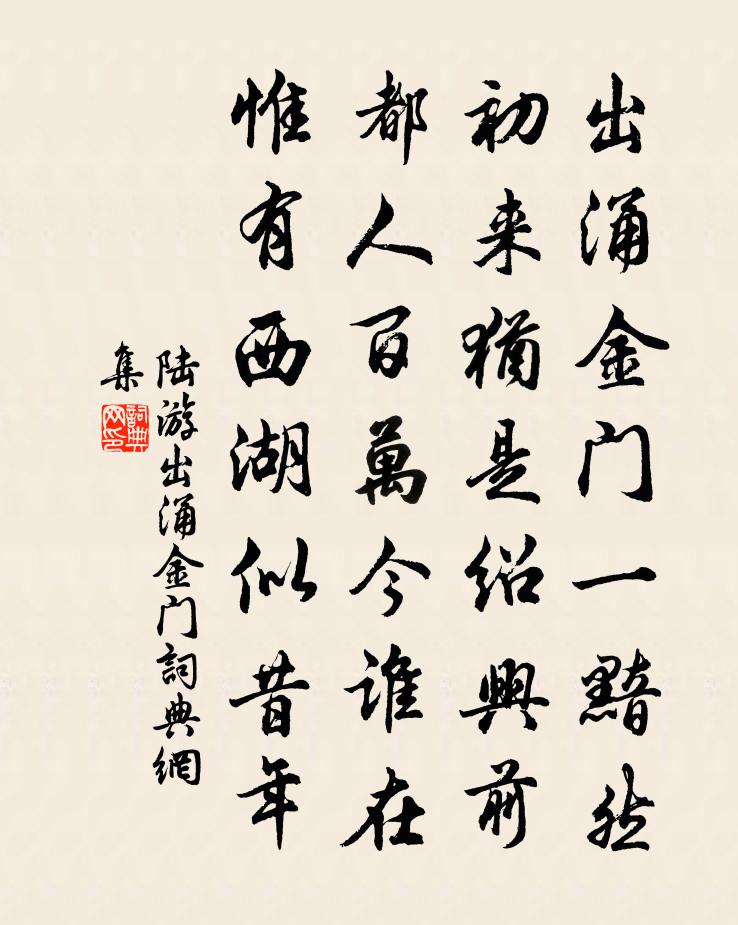 出涌金门一黯然
初来猶是绍興前
都人百萬今谁在
惟有西湖似昔年
陆游出涌金门詞典網
集
詞典
网印